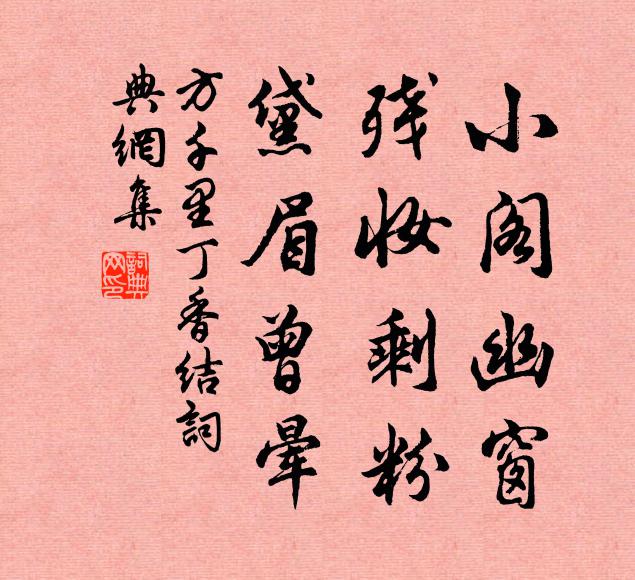 小阁幽窗
残妆剩粉
黛眉曾晕
方千里丁香结詞
典網集
詞典网印